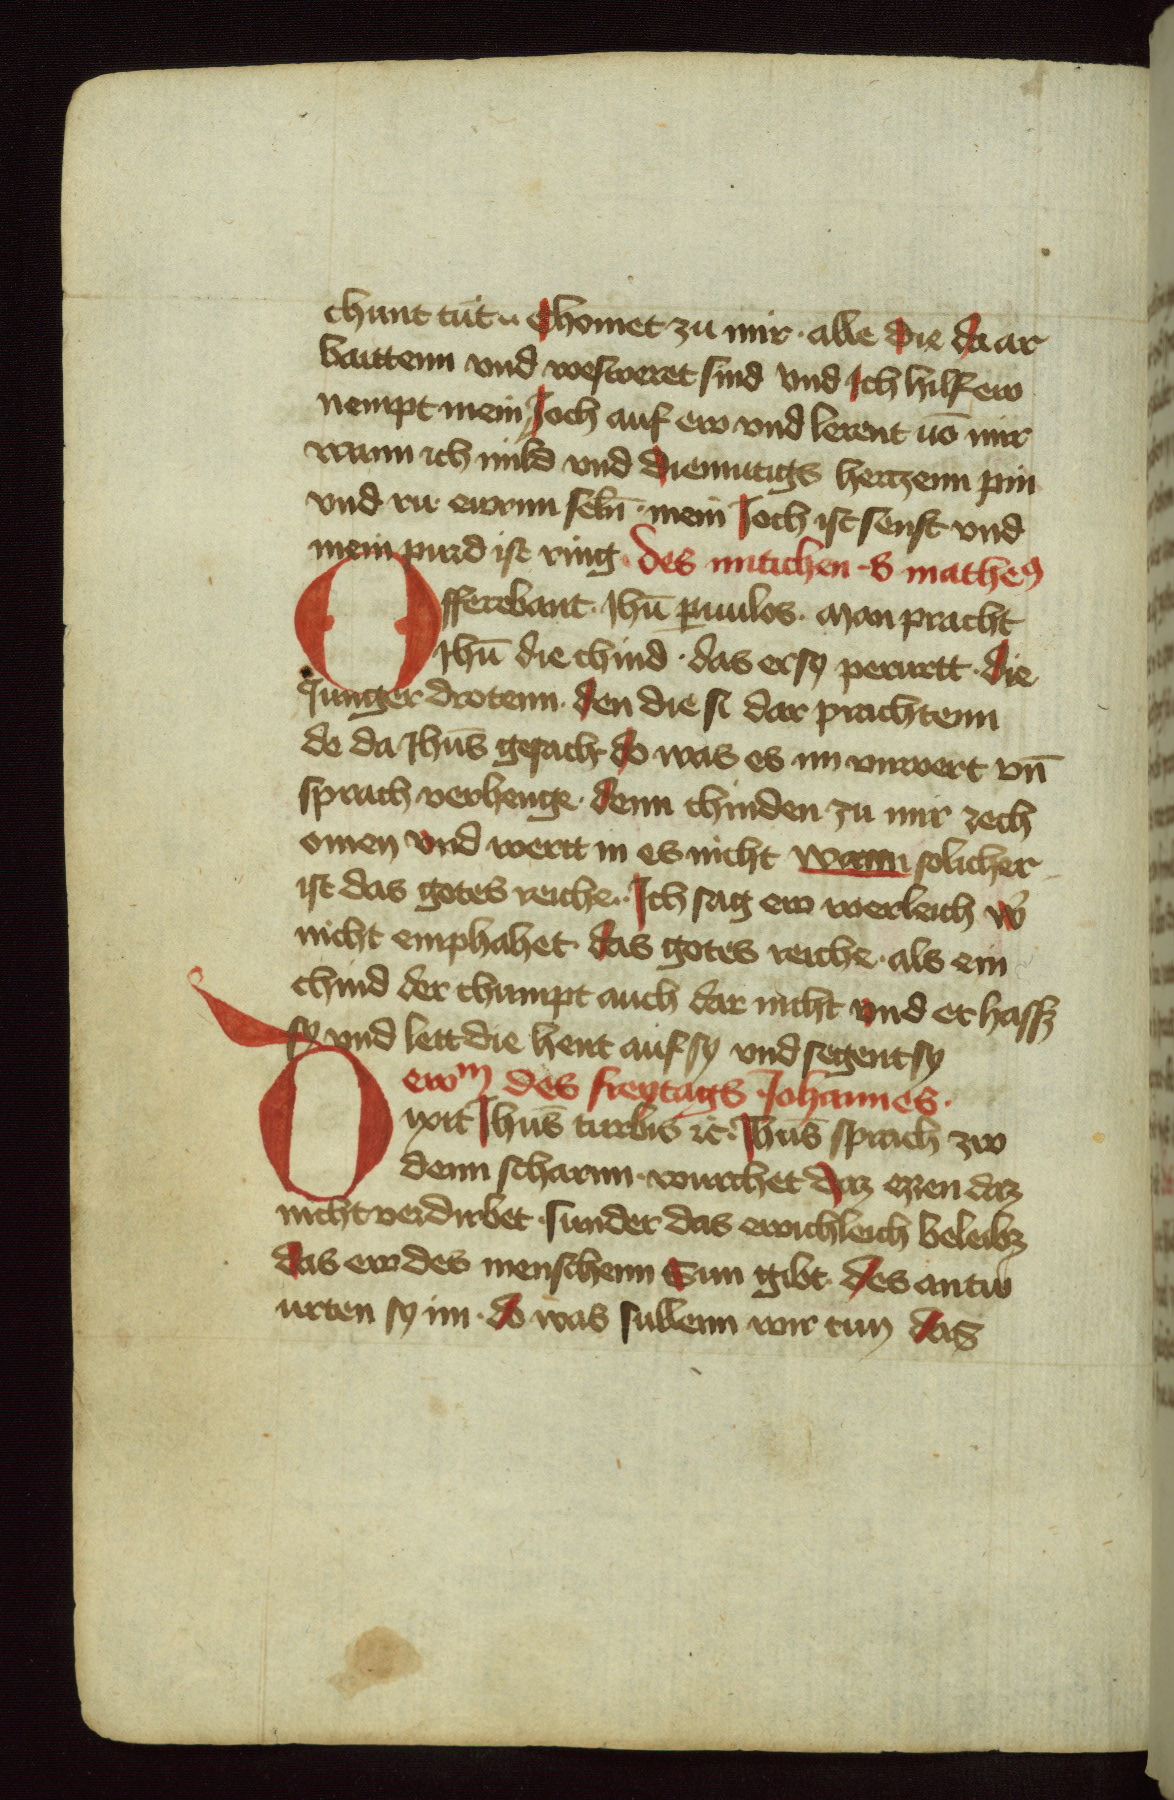 chunt tůt ·· chomet zu mir · alle die da ar
baittenn vnd wesweret sind vnd Ich hilf ew
nempt mein Joch auf ew vnd lerent uō mir
wann ich mild vnd diemutigs hertzenn pin
vnd ru ewrnn seln̄ · mein Joch ist senft vnd
mein purd ist ring · des mitichen · S matheꝰ
Offerebant · Jhū ꝑuulos · Man pracht
Jhū die chind · das er sy perurtt · die
Junger drotenn · den die si dar prachtenn
do da Jhūs gesach do was es im vnwert vn̄
sprach verhenge · denn chinden zu mir zech
omen vnd wertt in es nicht wann solicher
ist das gotes reiche · Ich sag ew werleich w͛
nicht emphahet · das gotes reiche · als ein
chind der chumpt auch dar nicht vnd er hasſz
sy vnd lett die hent auf sy vnd segent sy
ewm des freytags Johannes ·
Dixit Jhūs turbis ꝛc · Jhūs sprach zw
denn scharnn · wurchet daz ezzen daz
nicht verdirbet · sunder das ewichleich beleibz
das ew des menschenn Sun gibt · des antw
urten sy im · do was sullenn wir tun das